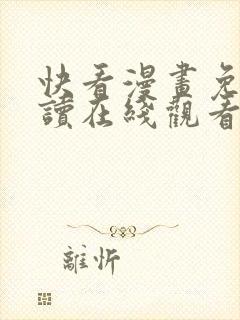 快看漫畫免
讀在綫觀看
離忻